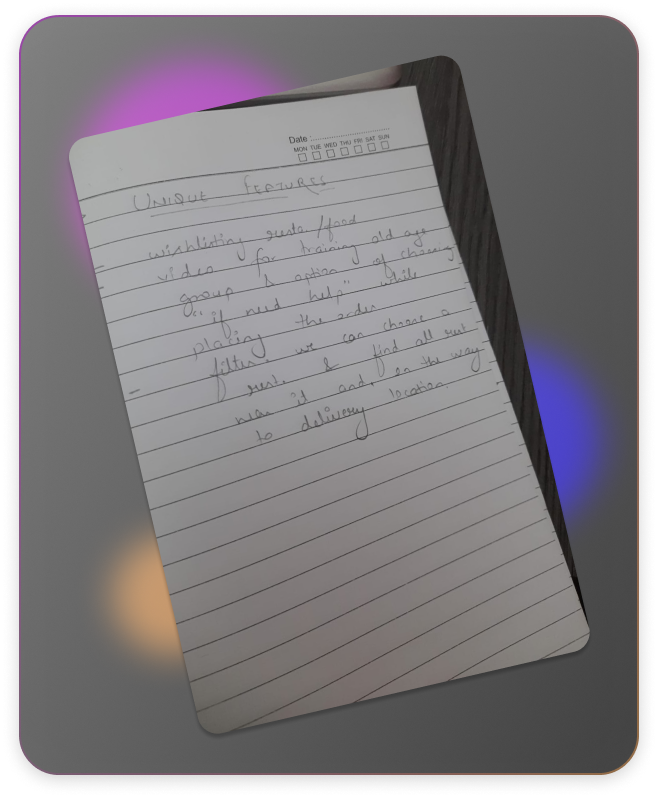 Date
MON TUE WED THU FRI SAT SUN
UNIQUE FEATURES
wishlisting resto/food
video for training old age
group & option of choosing
"if need help" while
placing the order
filter: we can choose a
rest. & find all rest
near it and. on the way
to delivery location